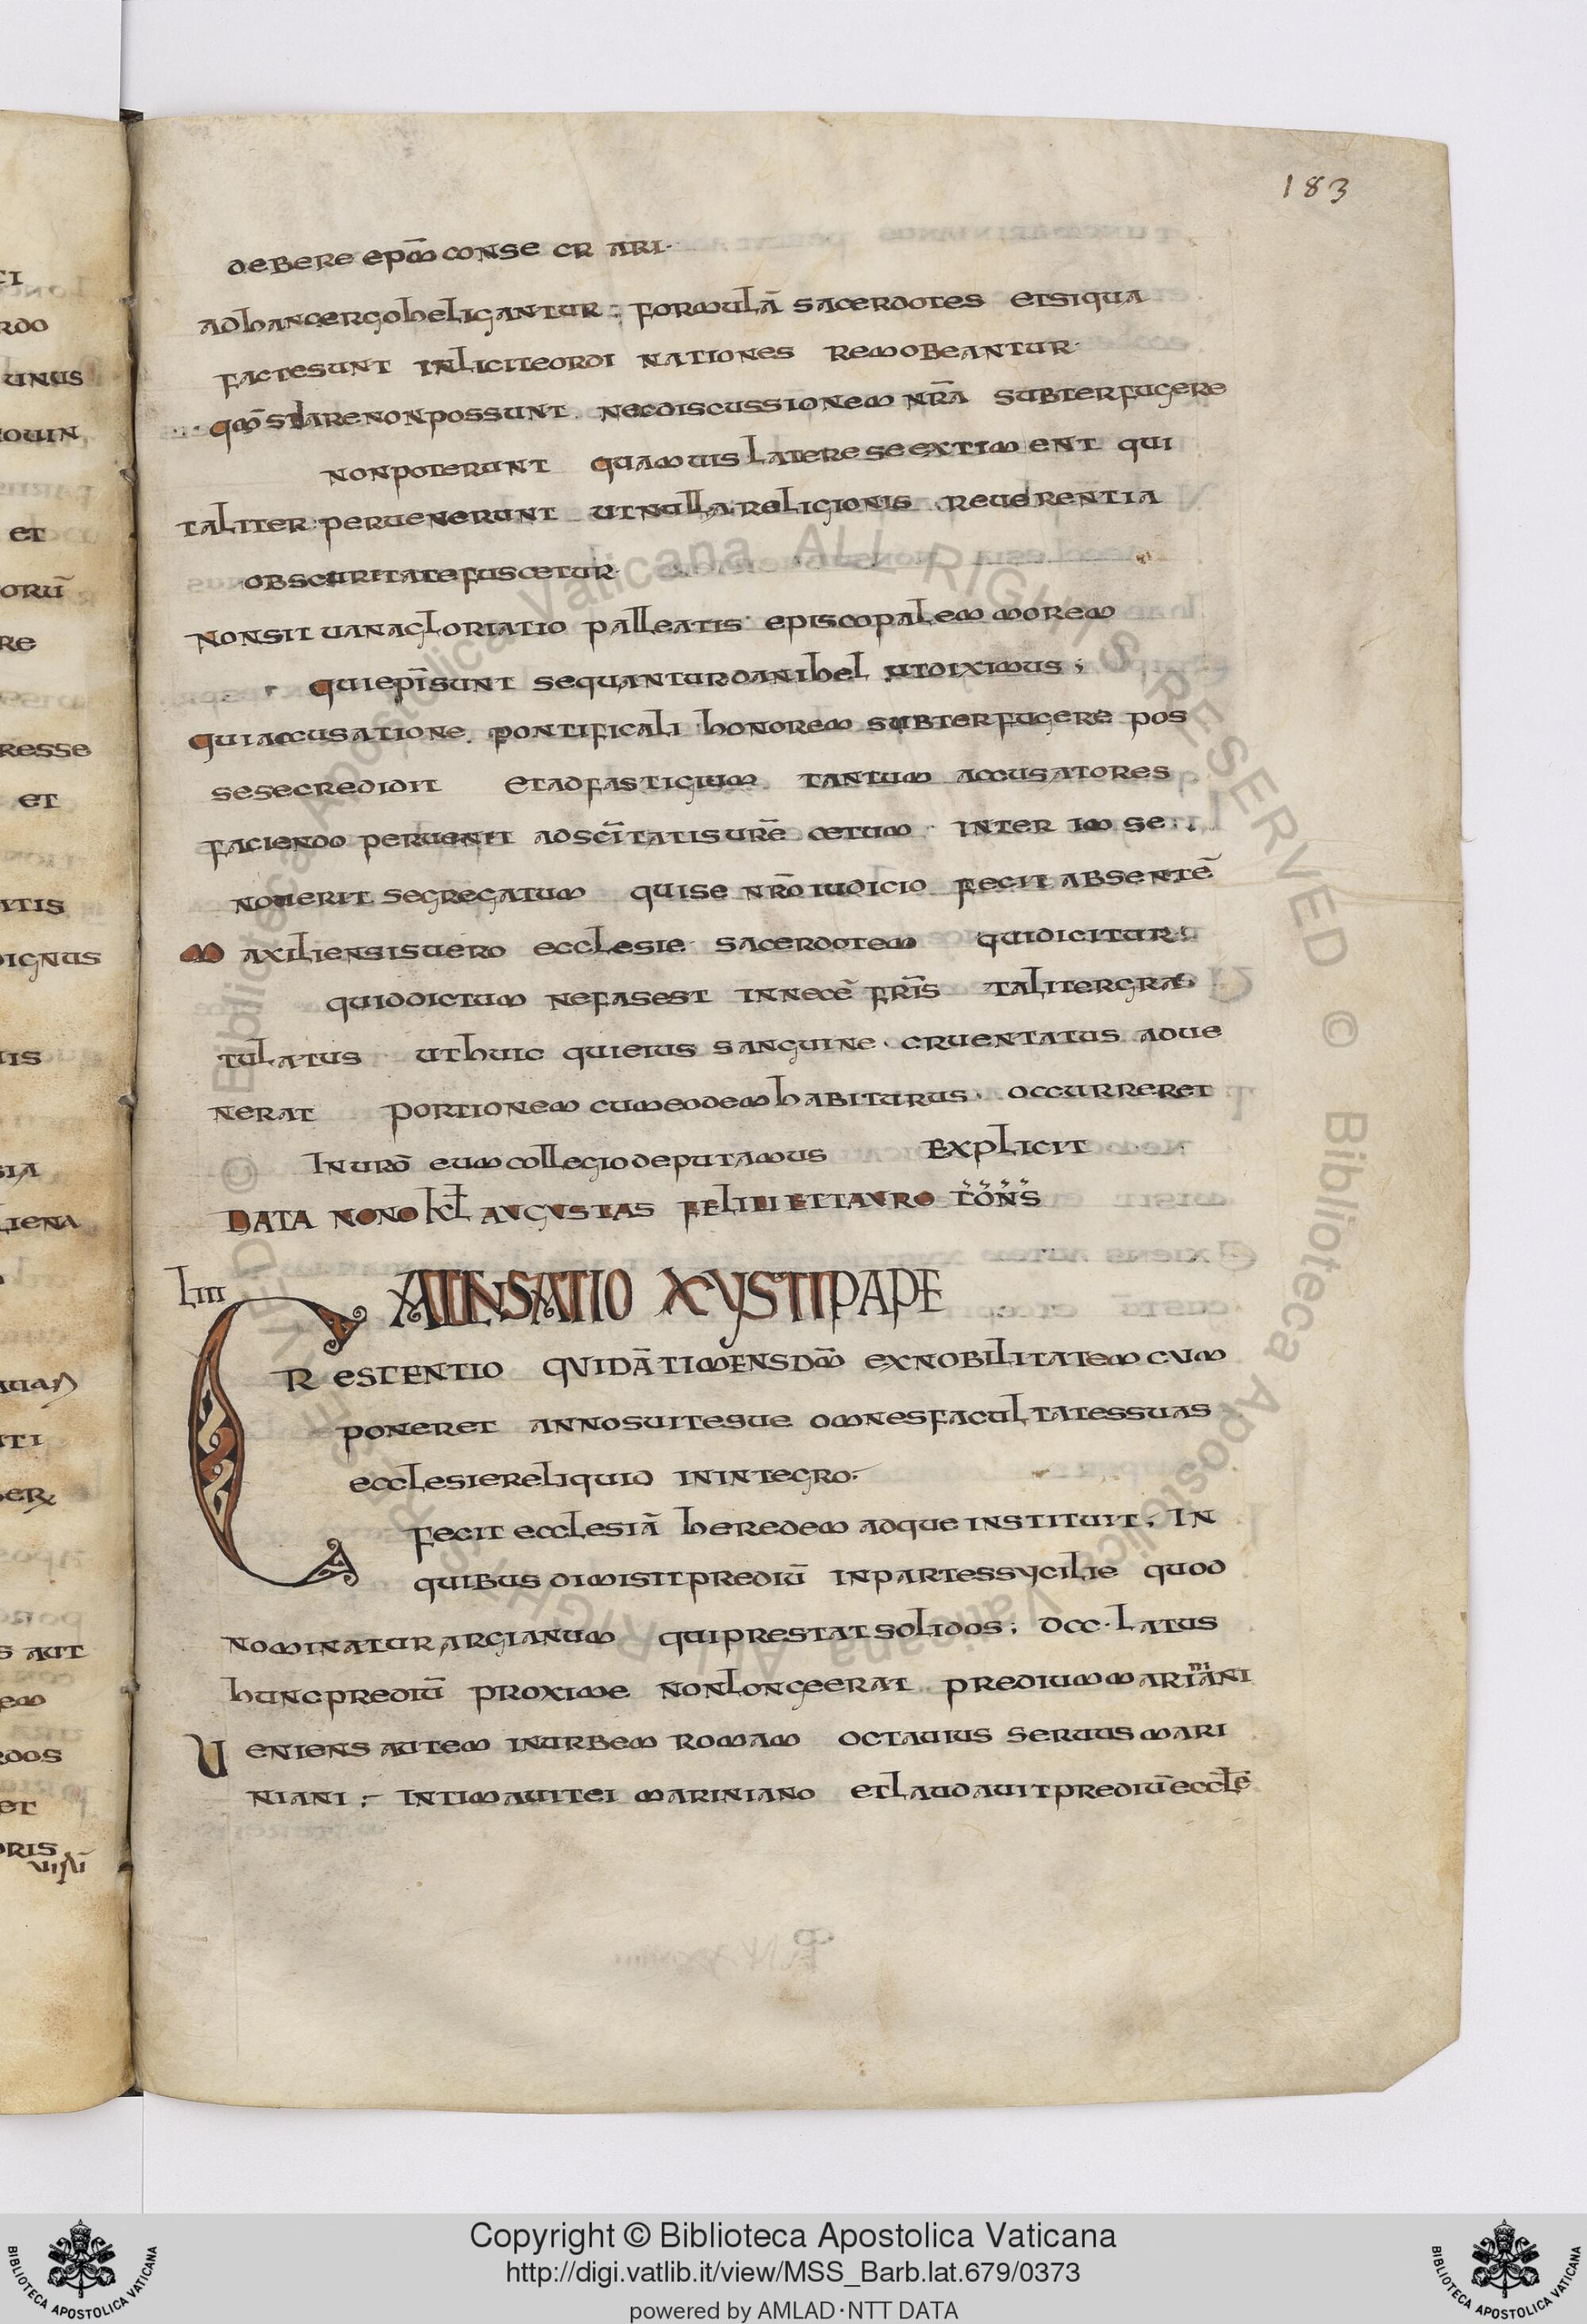 183
debere ep̄m conse cr ari·
ad hanc ergo heligantur; formulā sacerdotes et siqua
facte sunt inlicite ordi nationes remobeantur·
qm̄ stare non possunt. nec discussionem nr̄a subterfugere
non poterunt quamuis latere se extiment qui
taliter peruenerunt ut nulla religionis reuerentia
obscuritate fuscetur
Non sit uana gloriatio palleatis episcopalem morem
qui ep̄i sunt sequantur danihel ut diximus;
qui accusatione pontificali honorem subterfugere pos
se se credidit et ad fastigium tantum accusatores
faciendo peruenit ad sc̄itatis ur̄e cetum· inter im se
nouerit segregatum qui se nr̄o iudicio fecit absentē
Maxiliensis uero ecclesie sacerdotem qui dicitur
quid dictum nefas est in necē fr̄is taliter gra
tulatus ut huic qui eius sanguine· cruentatus adue
nerat portionem cum eodem habiturus· occurreret
In urō eum collegio deputamus Explicit
Data nono kl augustas felici et tauro c̄ōn̄s̄
LIII
ATINSATIO XYSTI PAPE
Crestentio quidā timens dm̄ ex nobilitatem cum
poneret anno suitesue omnes facultates suas
ecclesie reliquid in integro·
fecit ecclesiā heredem adque instituit· in
quibus dimisit prediū in partes sycilie quod
nominatur argianum qui prestat solidos; dcc· latus
hunc prediū proxime non longe erat predium mariani
ni
Ueniens autem in urbem romam octauius seruus mari
niani;– intimauit ei mariniano et laudauit prediū eccle
Copyright © Biblioteca Apostolica Vaticana
http://digi.vatlib.it/view/MSS_Barb.lat.679/0373
powered by AMLAD·NTT DATA
BIBLIOTECA APOSTOLICA VATICANA
BIBLIOTECA APOSTOLICA VATICANA
© Biblioteca Apostolica Vaticana ALL RIGHTS RESERVED
© Biblioteca Apostolica Vaticana ALL RIGHTS RESERVED